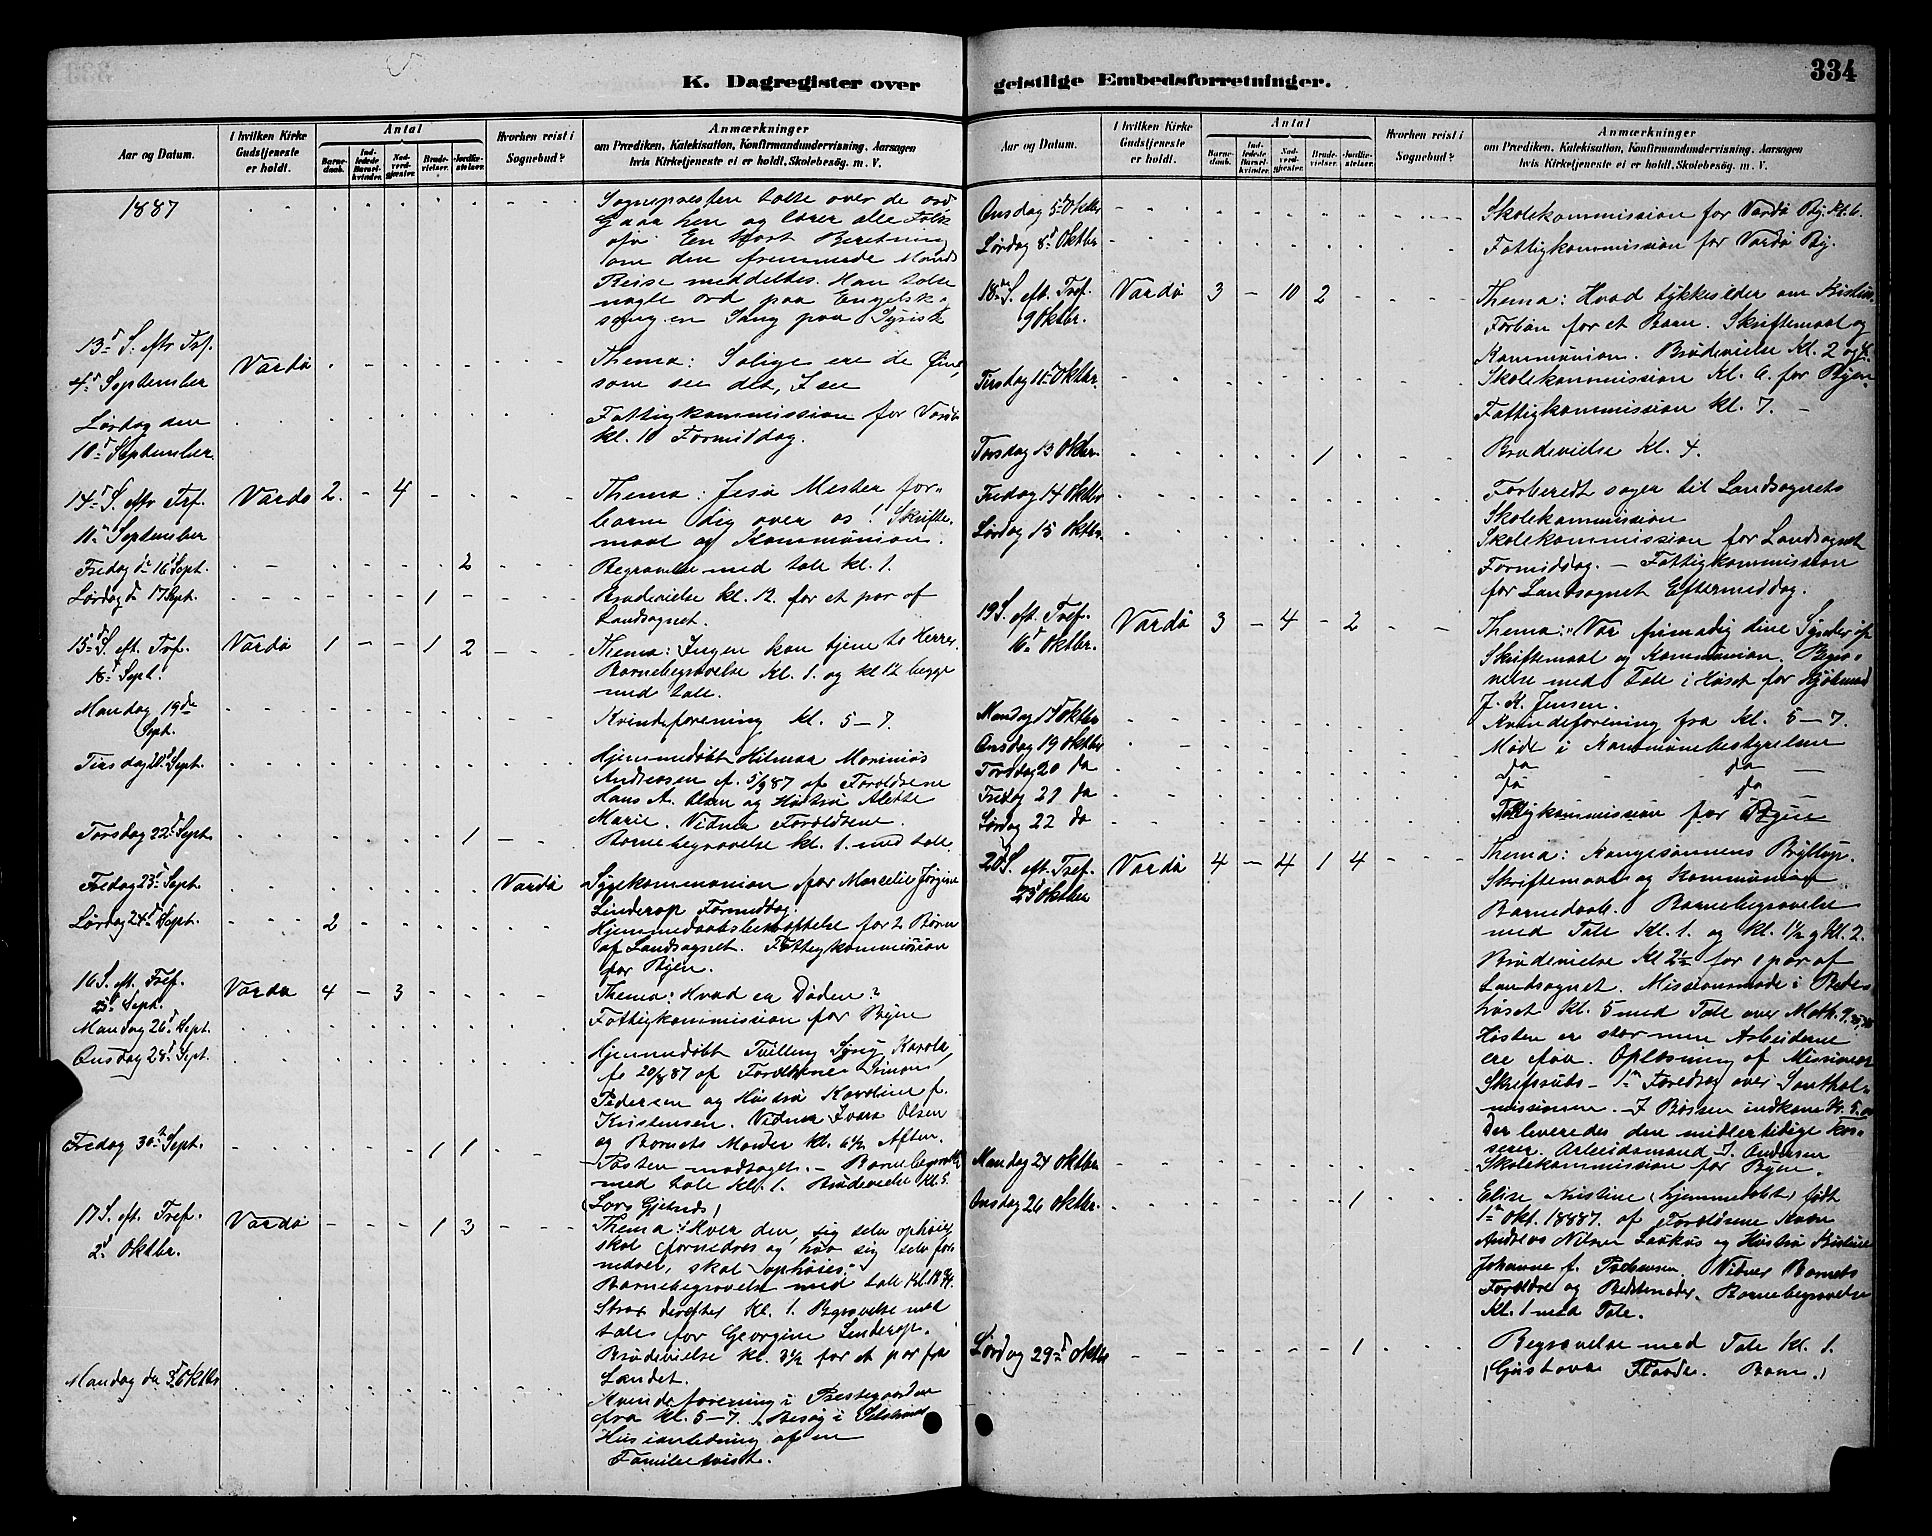 334
K. Dagregister over
geistlige Embedsforretninger.
Aar og Datum.
I hvilken Kirke Gudstjeneste er holdt.
Antal
Barnedaab.
Indledede Barselkvinder.
Nadverdgjester.
Brudevielser.
Jordfæstelser.
Hvorhen reist i Sognebud?
Anmærkninger
om Prædiken, Katekisation, Konfirmandundervisning. Aarsagen
hvis Kirketjeneste ei er holdt. Skolebesög. m. V.
1887
Sognepresten talte over de ord
Gaar hen og lærer alle Folk
En kort Beretning
om den fremmede Mands
Reise meddeltes. Han talte
nogle ord paa Engelsk
sang en Sang paa Syrisk
13d S. eftr Tref.
4d September Vardö
Thema: Salige ere de Øine,
som see det, I see
Lördag den
10d September
Fattigkommission for Vardö
kl. 10 Formiddag.
14d S. eftr Tref. Vardö 2 - 4
11te September
Thema: Jesu Mester for-
barm dig over os! Skrifte-
maal og Kommunion.
Fredag d 16 Sept. 2 Begravelse med tale kl. 1.
Lördag d 17 Sept. 1 Brudevielse kl. 12. for et par af
Landsognet.
15d S. eft. Tref. Vardö 1 - - 1 2
18d Sept.
Thema: Ingen kan tjene to Herrer.
Barnebegravelse kl. 1. og kl 12 begge
med tale.
Mandag 19de
Sept.
Kvindeforening kl. 5-7.
Tirsdag Sept.
Hjemmedöbt Hilmar Marinius
Andreasen f. 5/9 87 af Forældrene
Hans A. Olsen og Hustru Alette
Marie. Vidner Forældrene.
Torsdag 22d Sept. 1 Barnebegravelse kl. 1. med tale.
Fredag 23d Sept. Vardö Sygekommunion for Marcelie Jörgine
Linderop Formiddag.
Lördag 24d Sept. 2 Hjemmedaabsbekræftelse for 2 Börn
af Landsognet. Fattigkommission
for Byen.
16 S. eft. Tref. Vardö 4 - 3
25d Sept.
Thema: Hvad er Döden?
Mandag 26d Sept. Fattigkommission for Byen
Onsdag 28d Sept.
Hjemmedöbt Tvilling Karole
f. 20/8 87 af Forældrene Simon
Pedersen og Hustru Karoline f.
Kristensen. Vidner Olsen
og Barnets Moder kl. 6½ Aften.
Fredag 30te Sept. 1 1
Posten modtaget. - Barnebegravelse
med tale kl. 1. Brudevielse kl. 5.
17 S. eft. Tref. Vardö - - - 1 3
2d Oktbr.
Thema: Hver den, sig selv ophöier
skal fornedres og hvo sig selv for-
nedrer, skal ophöies.
Barnebegravelse med tale kl. 12¾.
Strax derefter kl. 1. Begravelse med
tale for Georgine Linderop.
Brudevielse kl. 3½ for et par fra
Landet.
Mandag den 3 Oktbr
Kvindeforening i Prestegaarden
fra kl. 5-7. Besög i
Hus i anledning af en
Familietvist.
Onsdag 5te Oktbr Skolekommission for Vardö By. kl. 6.
Lördag 8d Oktbr. Fattigkommission for Vardö By.
18de S. eft. Tref. Vardö 3 - 10 2
9 Oktbr.
Thema: Hvad tykkes Eder om Kristus.
Forbön for et Barn. Skriftemaal og
Kommunion. Brudevielse kl. 2 og 4.
Tirsdag 11te Oktbr. Skolekommission kl. 6. for Byen.
Fattigkommission kl. 7. -
Torsdag 13 Oktbr. 1 Brudevielse kl. 4.
Fredag 14 Oktbr Forberedt sager til Landsognets
Skolekommission
Lördag 15 Oktbr. Skolekommission for Landsognet
Formiddag. - Fattigkommission
for Landsognet Eftermiddag.
19 S. eft. Tref. Vardö 3 - 4 - 2
16d Oktbr.
Thema: Vær frimodig dine Synder
Skriftemaal og Kommunion. Begra-
velse med tale i Huset for
J. K. Jensen.
Mandag 17 Oktbr Kvindeforening fra Kl. 5-7.
Onsdag 19 Oktbr Möde i Kommunebestyrelsen
Torsdag 20 da da da -
Fredag 21 da da da -
Lördag 22 da Fattigkommission for Byen
20 S. eft. Tref. Vardö 4 - 4 1 4
23d Oktbr
Thema: Kongesönnens Bryllup.
Skriftemaal og Kommunion
Barnedaab. Barnebegravelse
med Tale Kl. 1. og kl. 1½ og kl. 2.
Brudevielse Kl 2½ for 1 par af
Landsognet. Missionsmöde i Bede-
huset kl. 5 med Tale over Math. 9.
Hösten er stor men Arbeiderne
ere faa. Oplæsning af Missions
1te Foredrag over Santhal-
missionen. - I Bössen indkom Kr. 5.00
Der leveredes den midlertidige kas-
serer. Arbeidsmand J. Andersen
Mandag 24 Oktbr. Skolekommission for Byen.
Onsdag 26 Oktbr. 1
Elise Kristine (hjemmedöbt) födt
1te Okt. 18887. af Forældrene Kvæn
Andreas Nilsen og Hustru Kristine
Johanne f. Pedersen. Vidner Barnets
Forældre og Bedstemoder. Barnebegravelse
Kl. 1 med Tale.
Lördag 29d Oktbr 1 Begravelse med Tale kl. 1.
(Gustava Barn.)